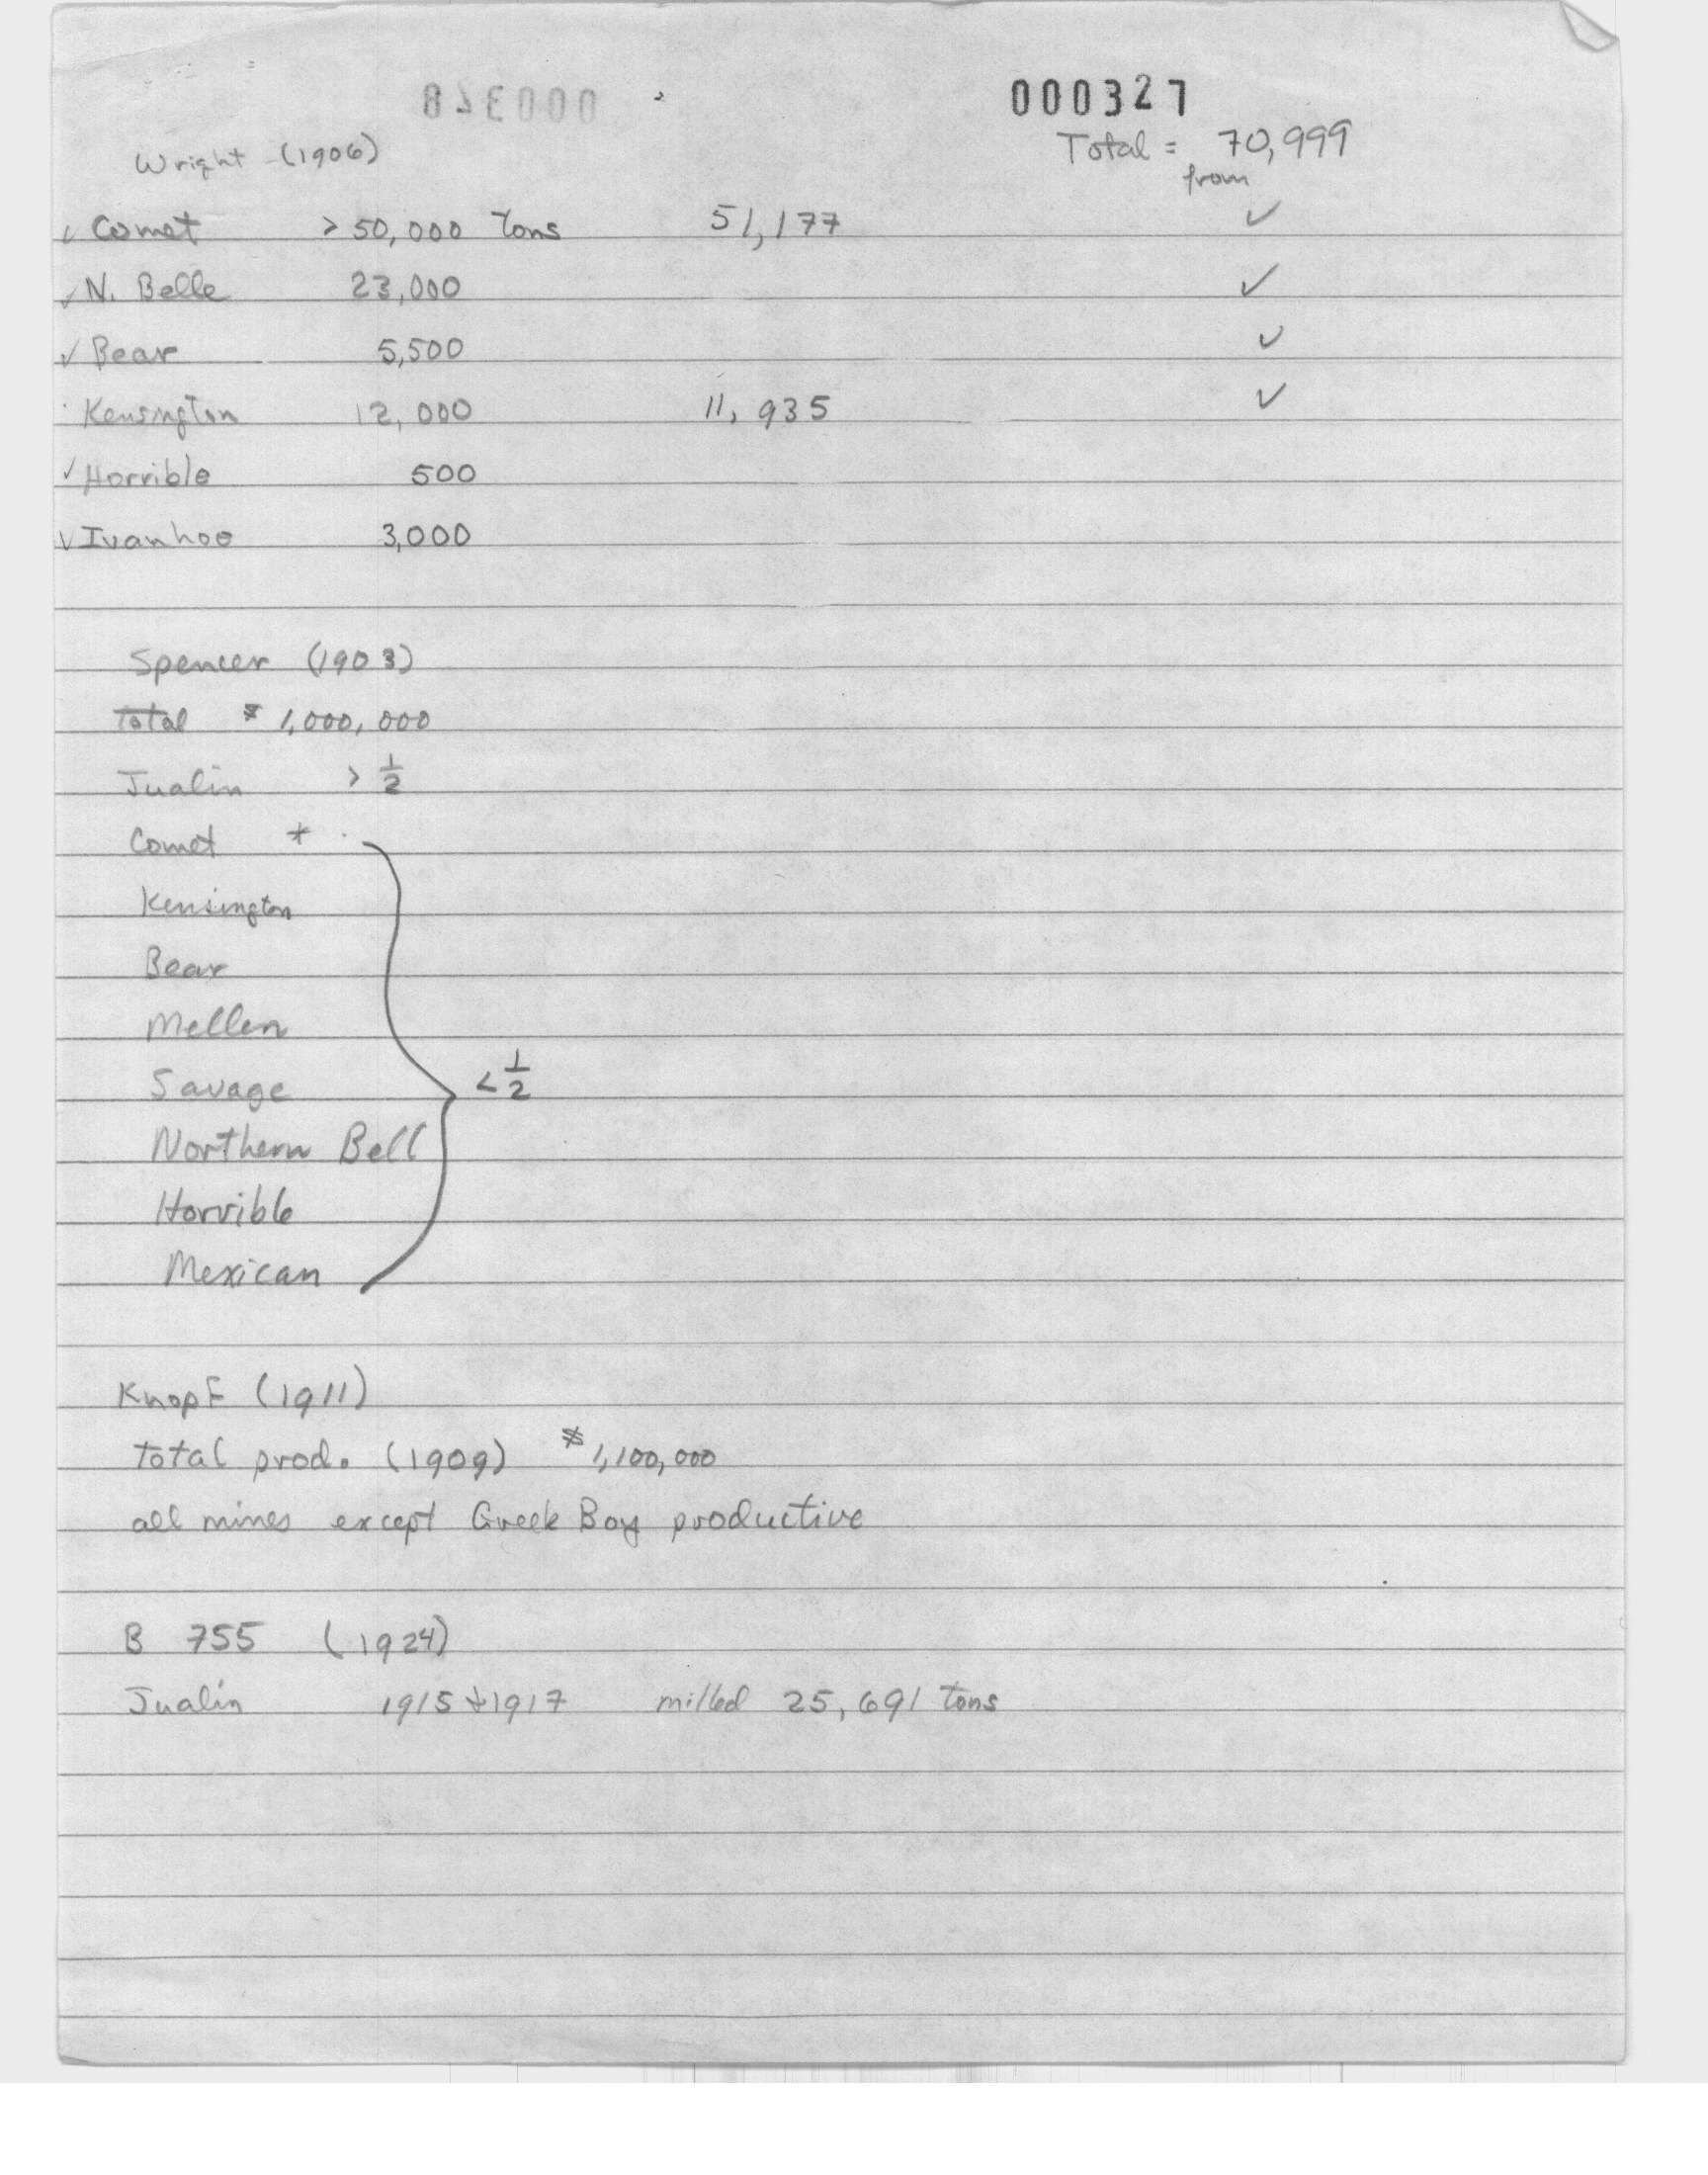 000328 000327
Wright (1906) Total = 70,999
from
✓ Comet > 50,000 Tons 51,177 ✓
✓ N. Belle 23,000 ✓
✓ Bear 5,500 ✓
Kensington 12,000 11,935 ✓
✓ Horrible 500
✓ Ivanhoe 3,000
Spencer (1903)
Total $ 1,000,000
Jualin > 1/2
Comet *
Kensington
Bear
Mellen
Savage < 1/2
Northern Bell
Horrible
Mexican
Knopf (1911)
Total prod. (1909) $ 1,100,000
all mines except Greek Boy productive
B 755 (1924)
Jualin 1915 + 1917 milled 25,691 tons